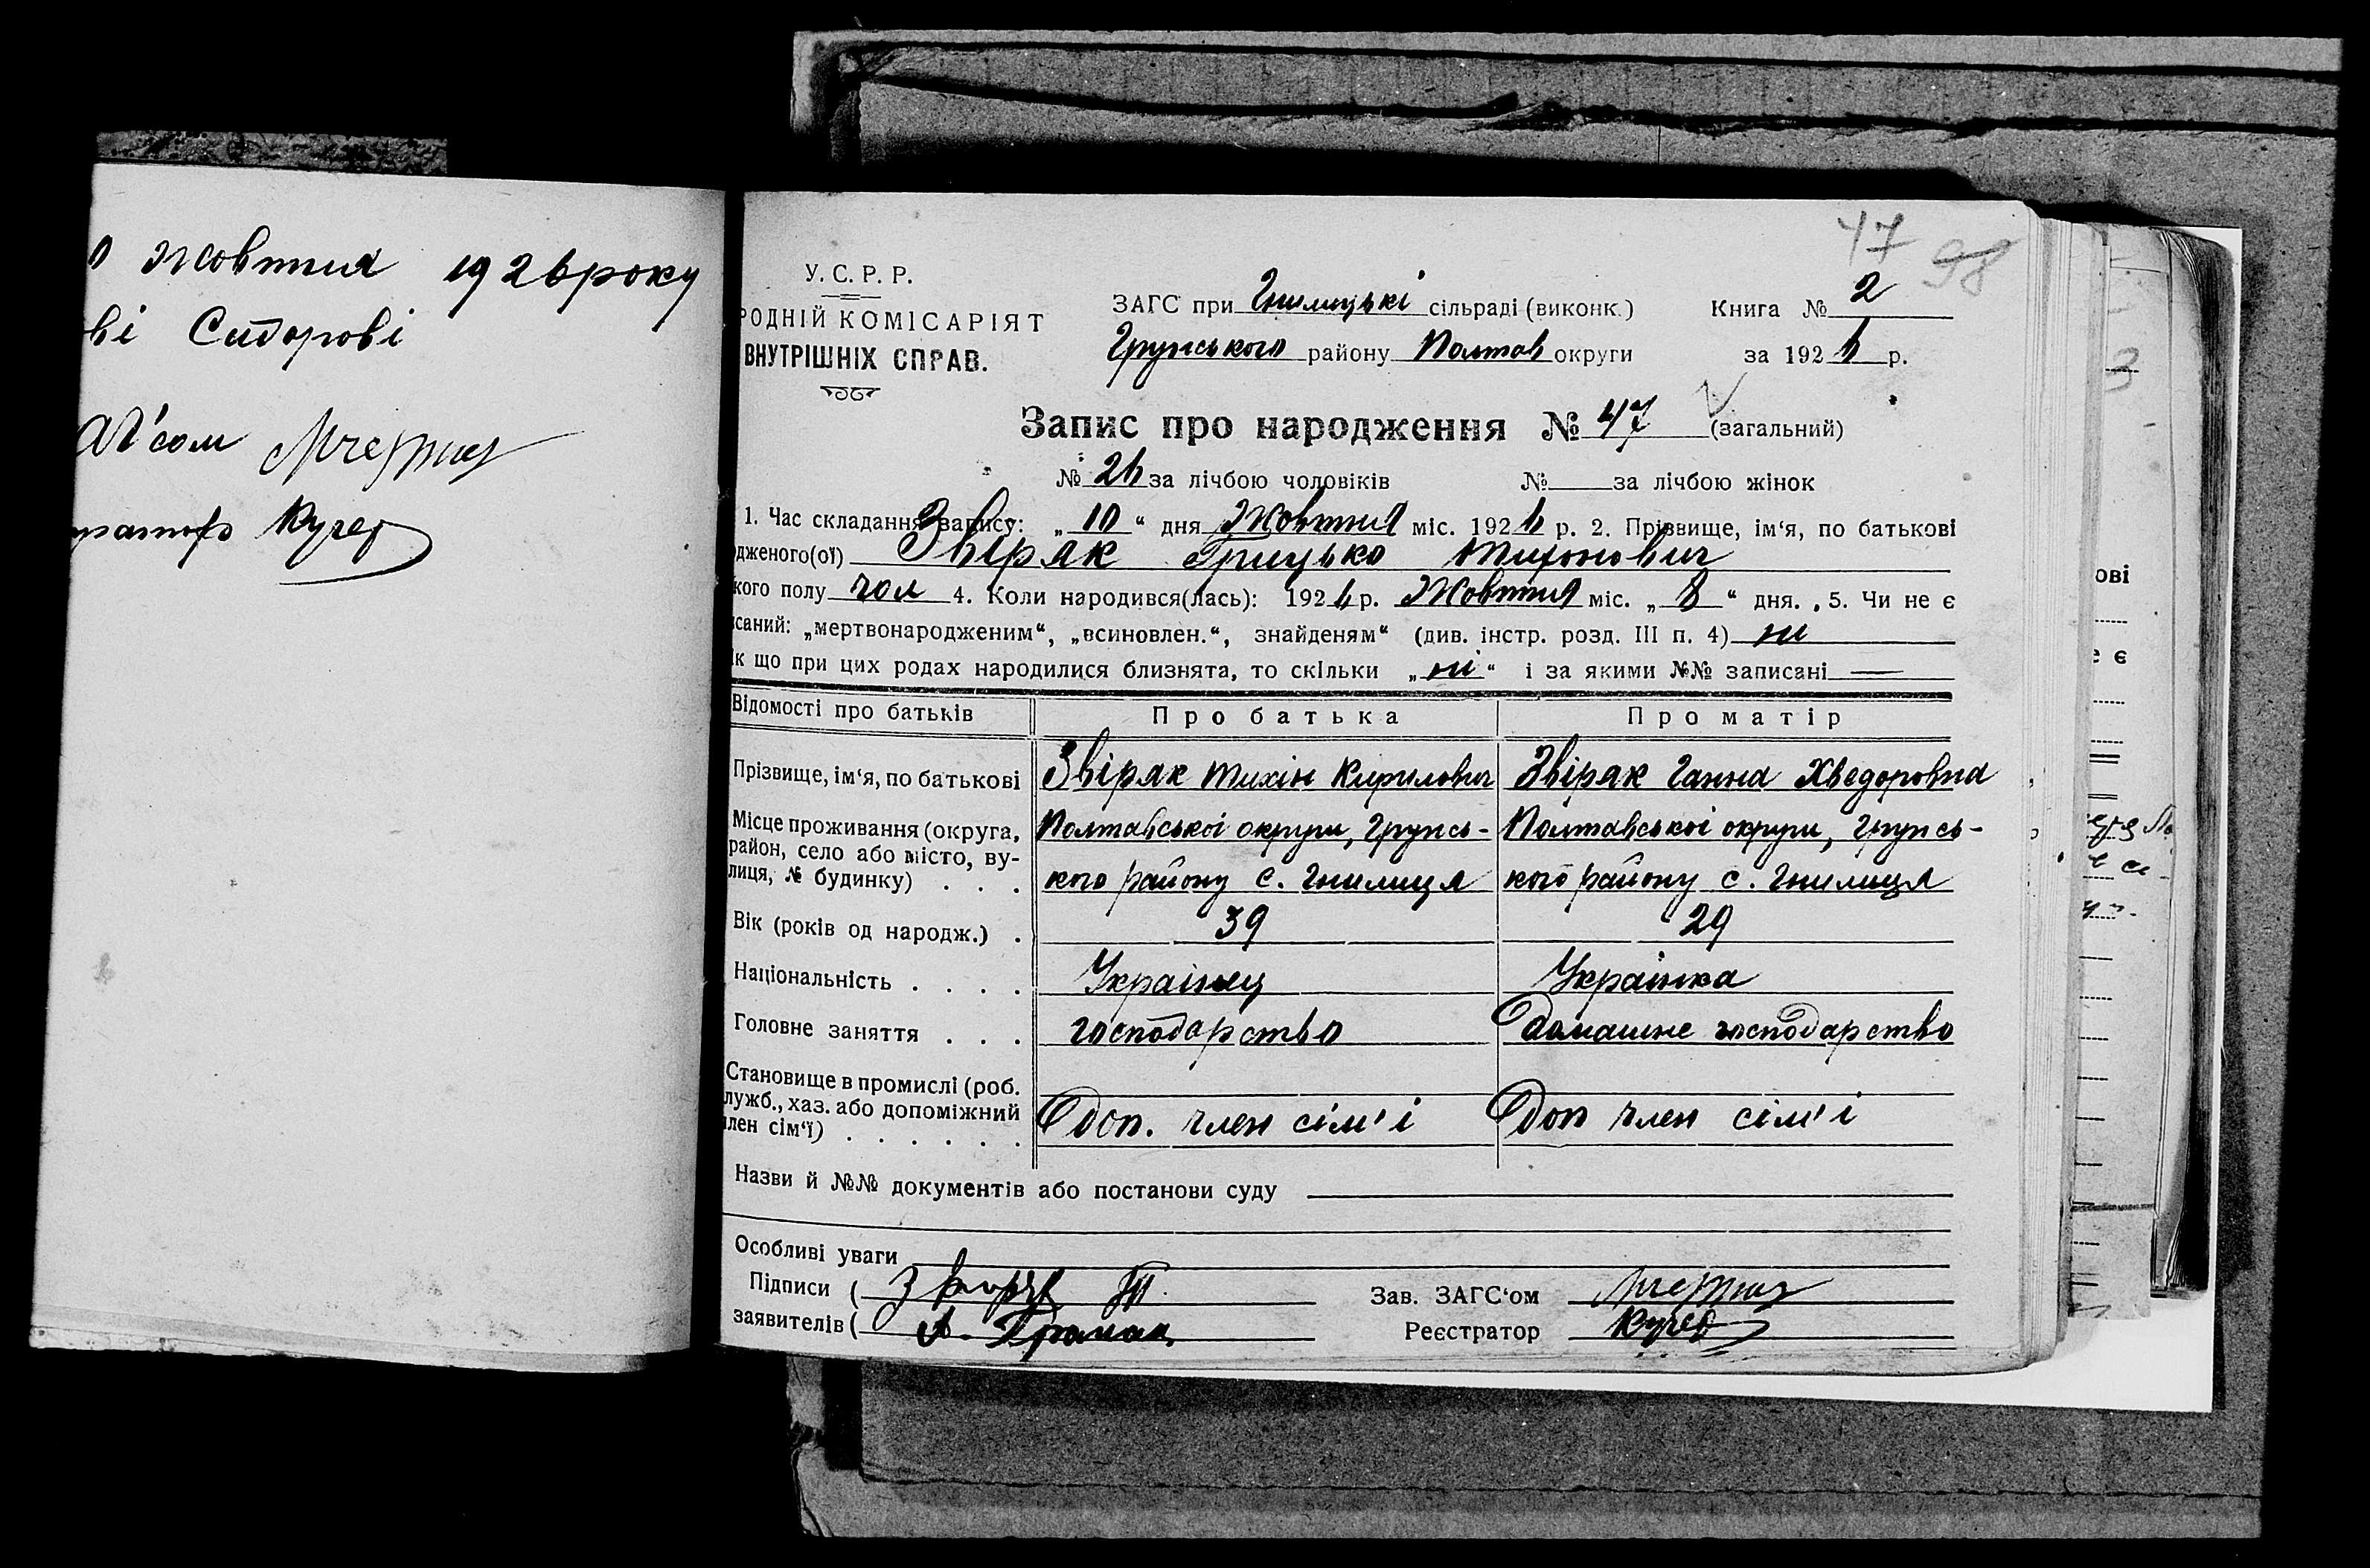 жовтня 1926 року
ві Сидорові
Кучер
47 98
У. С. Р. Р.
РОДНІЙ КОМІСАРІЯТ
ВНУТРІШНІХ СПРАВ.
ЗАГС при Гнилицькі сільраді (виконк.)
Грунського району Полтав округи
Книга № 2
за 1926 р.
Запис про народження № 47 (загальний)
№ 26 за лічбою чоловіків № за лічбою жінок
1. Час складання запису: „10“ дня Жовтня міс. 1926 р. 2. Прізвище, ім‘я, по батькові
дженого(ої) Звіряк Грицько Тихонович
кого полу чол 4. Коли народився(лась): 1926 р. Жовтня міс. „8“ дня. 5. Чи не є
саний: „мертвонародженим“, „всиновлен.“, знайденям“ (див. інстр. розд. III п. 4) ні
к що при цих родах народилися близнята, то скільки „ні“ і за якими №№ записані —
Відомості про батьків Про батька Про матір
Прізвище, ім‘я, по батькові Звіряк Тихін Кирилович Звіряк Ганна Хведоровна
Місце проживання (округа, Полтавської округи, Грунсь- Полтавської округи, Грунсь-
район, село або місто, ву-
лиця, № будинку) . . . кого району с. Гнилиця кого району с. Гнилиця
Вік (років од народж.) . 39 29
Національність . . . . Українец Українка
Головне заняття . . . господарство Домашне господарство
Становище в промислі (роб.
лужб., хаз. або допоміжний Доп. член сім'ї Доп член сім'ї
лен сім‘ї) . . . . . .
Назви й №№ документів або постанови суду
Особливі уваги
Підписи (
заявителів (
Зав. ЗАГС‘ом
Реєстратор Кучер
ові
є